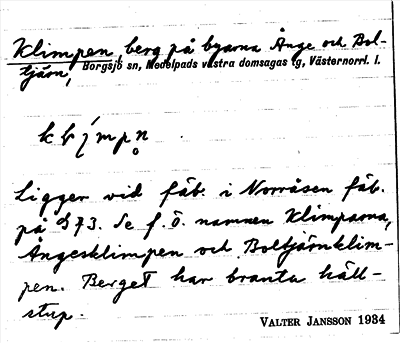 Klimpen, berg på byarna Ånge och Bol-
tjärn, Borgsjö sn, Medelpads västra domsagas tg, Västernorrl. l.
Ligger vid fäb. i Norråsen fäb.
på §73. Se f.ö. namnen Klimparna,
Ångesklimpen och Boltjärnklim-
pen. Berget har branta häll-
stup.
VALTER JANSSON 1934